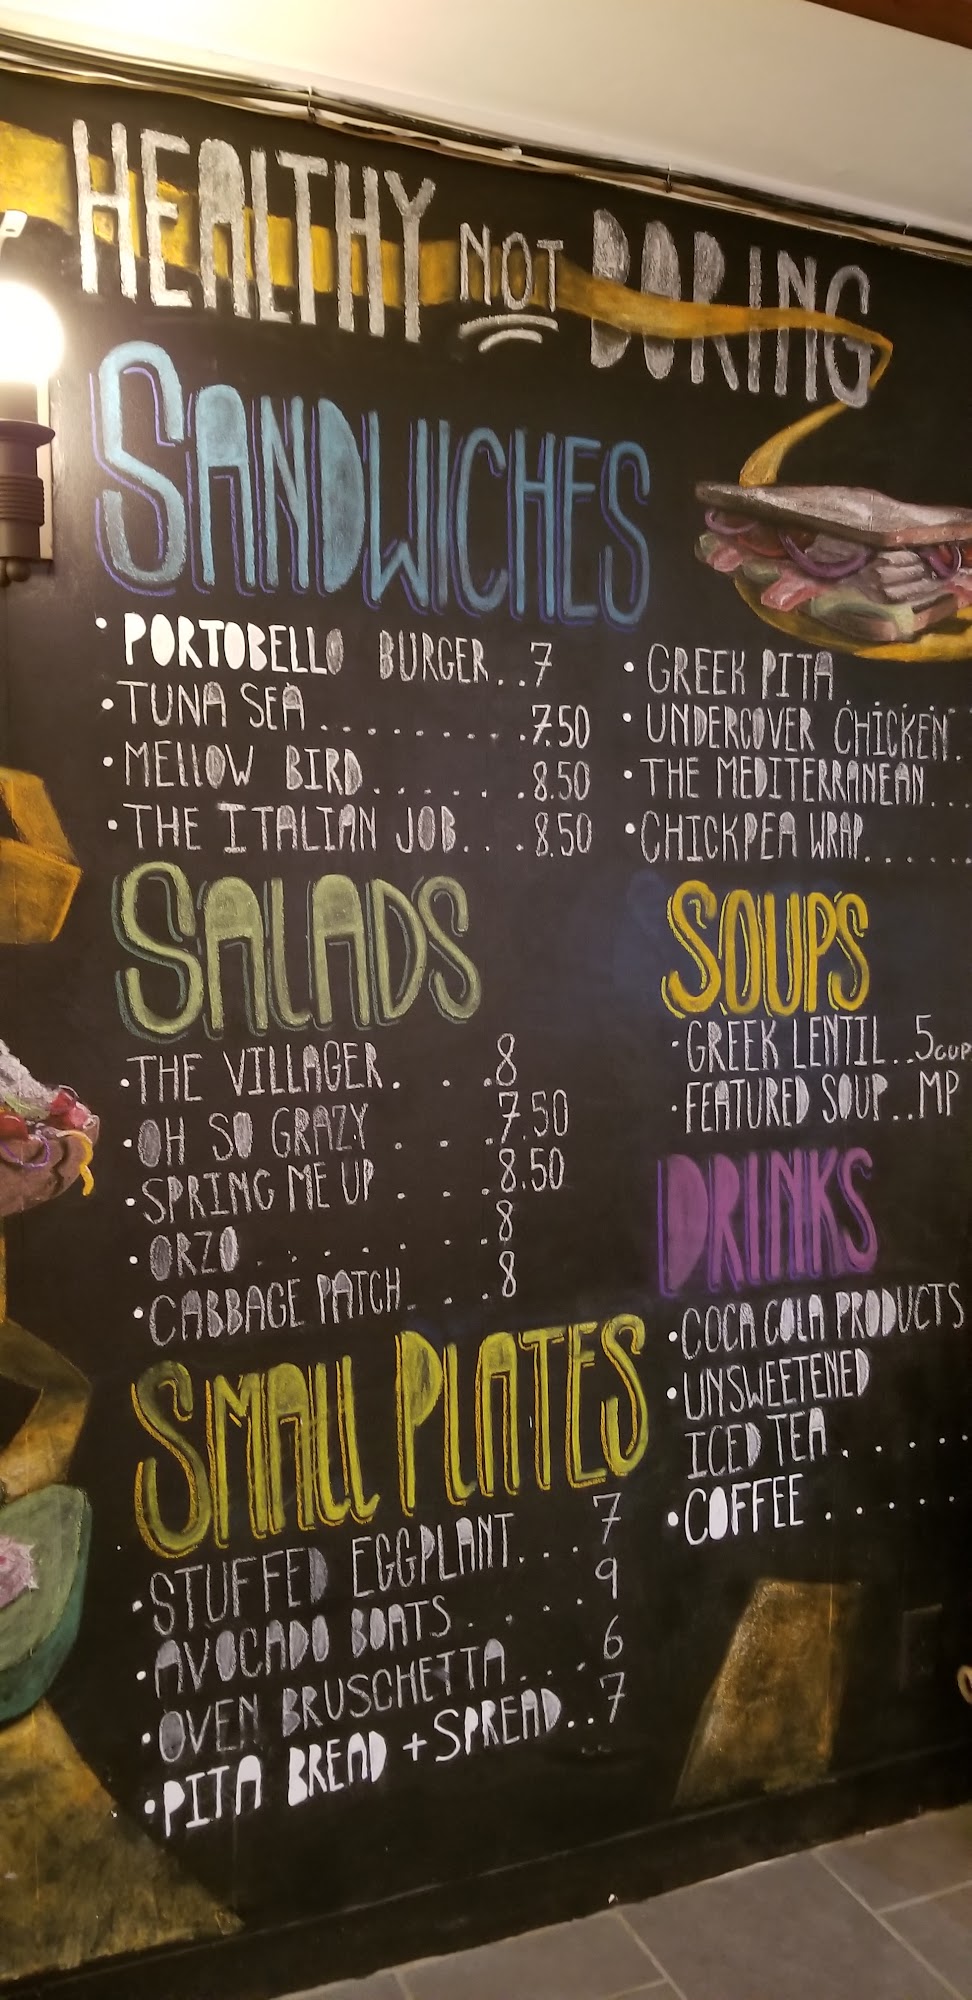 HEALTHY NOT BORING
SANDWICHES
• PORTOBELLO BURGER..7
• TUNA SEA..........7.50
• MELLOW BIRD.......8.50
• THE ITALIAN JOB...8.50
• GREEK PITA
• UNDERCOVER CHICKEN.
• THE MEDITERRANEAN...
• CHICKPEA WRAP......
SALADS
• THE VILLAGER...8
• OH SO GRAZY...7.50
• SPRING ME UP...8.50
• ORZO.......8
• CABBAGE PATCH...8
SOUPS
• GREEK LENTIL..5CUP
• FEATURED SOUP..MP
DRINKS
• COCA COLA PRODUCTS
• UNSWEETENED
ICED TEA.....
• COFFEE.....
SMALL PLATES
• STUFFED EGGPLANT...7
• AVOCADO BOATS.....9
• OVEN BRUSCHETTA...6
• PITA BREAD + SPREAD..7